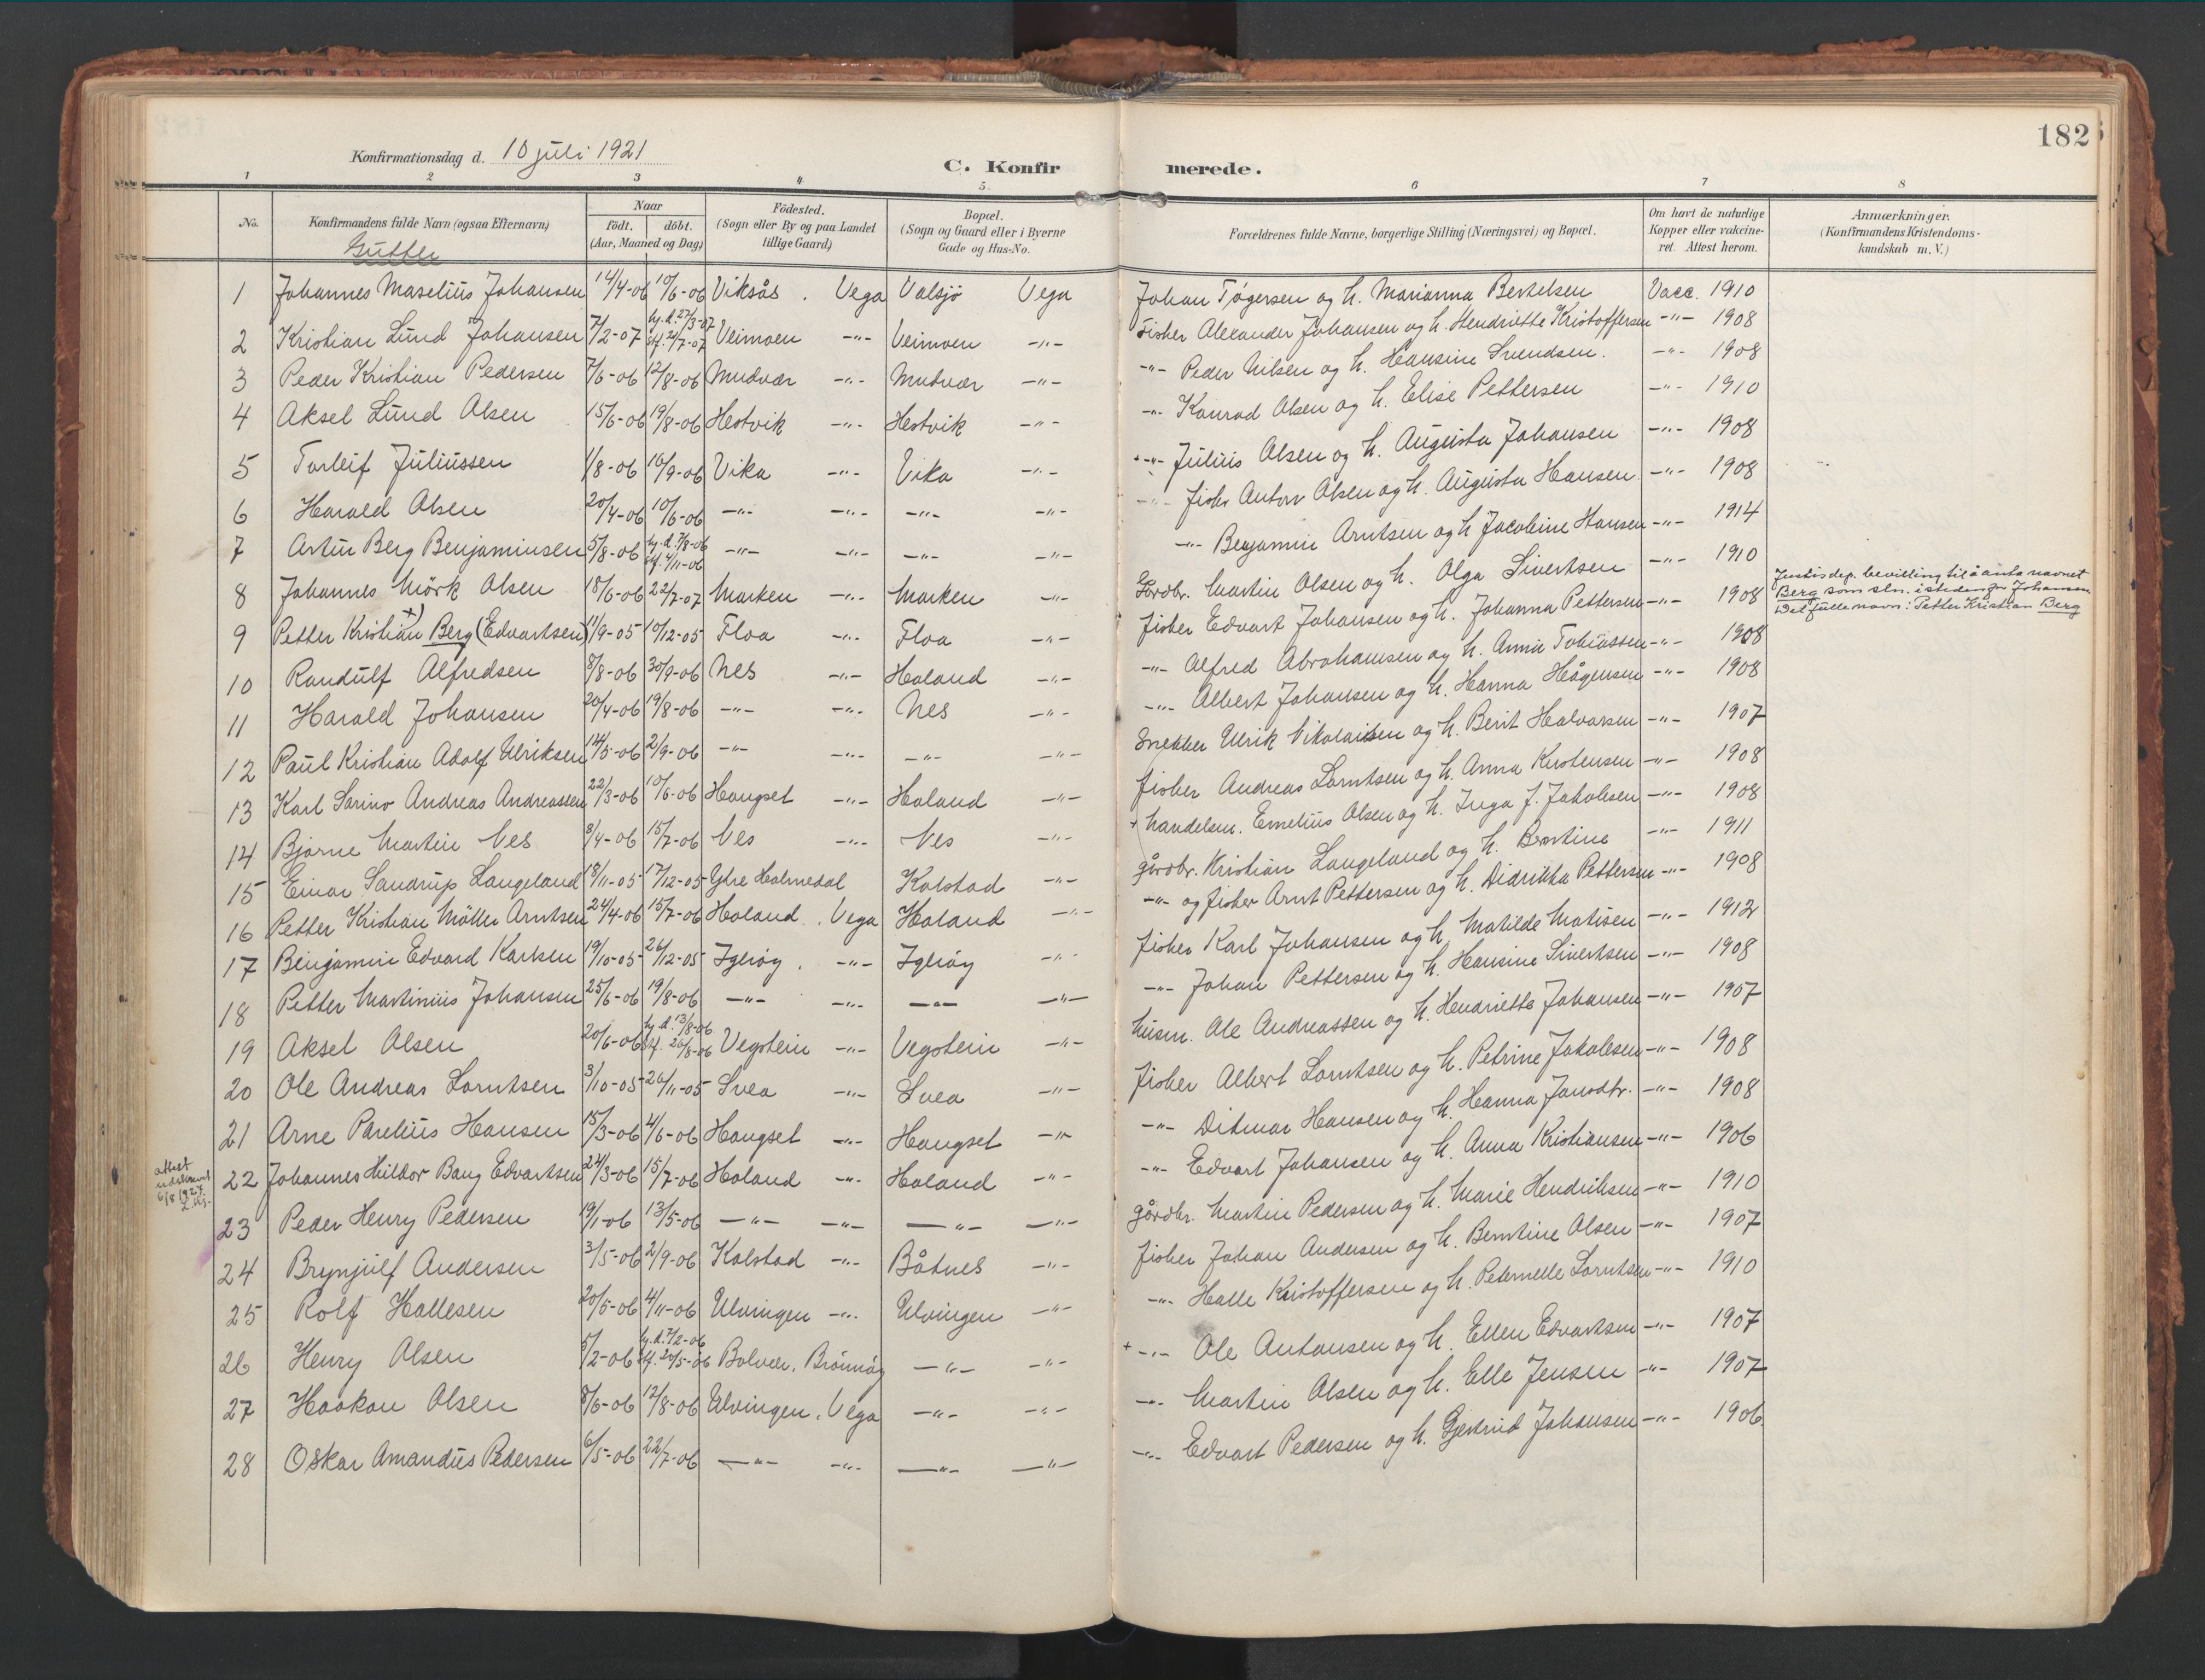 182
Konfirmationsdag d. 10 juli 1921
C. Konfirmerede.
1 2 3 4 5. 6 7 8
No. Konfirmandens fulde Navn (ogsaa Efternavn) Naar födt. döbt. (Aar, Maaned og Dag) Födested. (Sogn eller By og paa Landet tillige Gaard) Bopæl. (Sogn og Gaard eller i Byerne Gade og Hus-No. Forældrenes fulde Navne, borgerlige Stilling (Næringsvei) og Bopæl. Om havt de naturlige Kopper eller vakcineret. Attest herom. Anmærkninger. (Konfirmandens Kristendomskundskab m. V.)
Gutter
1 Johannes Maselius Johansen 14/4-06 10/6-06 Viksås . Vega Valsjö Vega Johan Tøgersen og h. Marianna Bertelsen Vacc. 1910
2 Kristian Lund Johansen 7/2-07 hj.d. 27/3-07 stf. 21/7-07 Veimoen -"- Veimoen -"- Fisker Alexander Johansen og h. Hendriette Kristoffersen -"- 1908
3 Peder Kristian Pedersen 7/6-06 12/8-06 Mudvær -"- Mudvær -"- -"- Peder Nilsen og h. Hansine Svendsen. -"- 1908
4 Aksel Lund Olsen 15/6-06 19/8-06 Hestvik -"- Hestvik -"- -"- Konrad Olsen og h. Elise Pettersen -"- 1910
5 Torleif Juliussen 1/8-06 16/9-06 Vika -"- Vika -"- -"- Julius Olsen og h. Augusta Johansen -"- 1908
6 Harald Olsen 20/4-06 10/6-06 -"- -"- -"- -"- -"- fisker Anton Olsen og h. Augusta Hansen -"- 1908
7 Artur Berg Benjaminsen 5/8-06 hj.d. 7/8-06 stf. 4/11-06 -"- -"- -"- -"- -"- Benjamin Arntsen og h Jacobine Hansen -"- 1914
8 Johannes Mörk Olsen 18/6-06 22/7-07 Marken -"- Marken -"- Gårdbr. Martin Olsen og h. Olga Sivertsen -"- 1910
9 Petter Kristian +) Berg (Edvartsen) 11/9-05 10/12-05 Floa -"- Floa -"- fisker Edvart Johansen og h. Johanna Pettersen -"- 1908 Justisdep. bevilling til å anta navnet Berg som sln. istedenfor Johansen Det fulle navn: Petter Kristian Berg
10 Randulf Alfredsen 8/8-06 30/9-06 Nes -"- Holand -"- -"- Alfred Abrahamsen og h. Anna Tobiassen -"- 1908
11 Harald Johansen 20/4-06 19/8-06 -"- -"- Nes -"- -"- Albert Johansen og h. Hanna Hågensen -"- 1908
12 Paul Kristian Adolf Ulriksen 14/5-06 2/9-06 -"- -"- -"- -"- Snekker Ulrik Nikolaisen og h. Berit Halvorsen -"- 1907
13 Karl Sarino Andreas Andreassen 22/3-06 10/6-06 Hongset -"- Holand -"- fisker Andreas Lorntsen og h. Anna Kristensen -"- 1908
14 Bjarne Martin Nes 8/4-06 15/7-06 Nes -"- Nes -"- + handelsm. Emelius Olsen og h. Inga J. Jakobsen -"- 1908
15 Einar Sandrup Langeland 18/11-05 17/12-05 Ytre Holmedal Kolstad -"- gårdbr. Kristian Langeland og h. Berntine -"- 1911
16 Petter Kristian Möller Arntsen 24/4-06 15/7-06 Holand . Vega Holand -"- -"- og fisker Arnt Pettersen og h. Didrikka Pettersen -"- 1908
17 Benjamin Edvard Karlsen 19/10-05 26/12-05 Igerøy . -"- Igerøy -"- fisker Karl Johansen og h. Matilde Matisen -"- 1912
18 Petter Martinius Johansen 25/6-06 19/8-06 -"- -"- -"- -"- -"- Johan Pettersen og h. Hansine Sivertsen -"- 1908
19 Aksel Olsen 20/6-06 hj.d. 13/8-06 stf. 26/8-06 Vegstein -"- Vegstein -"- husm. Ole Andreassen og h. Hendriette Johansen -"- 1907
20 Ole Andreas Lorntsen 3/10-05 26/11-05 Svea -"- Svea -"- fisker Albert Lorntsen og h. Petrine Jakobsen -"- 1908
21 Arne Parelius Hansen 15/3-06 4/6-06 Hongset -"- Hongset -"- -"- Ditmar Hansen og h. Hanna Jansdtr. -"- 1908
attest udskrevet 6/8 1927.
22 Johannes Hildor Bang Edvartsen 24/3-06 15/7-06 Holand -"- Holand -"- -"- Edvart Johansen og h. Anna Kristiansen -"- 1906
23 Peder Henry Pedersen 19/1-06 13/5-06 -"- -"- -"- -"- gårdbr. Martin Pedersen og h. Marie Hendriksen -"- 1910
24 Brynjulf Andersen 3/5-06 2/9-06 Kolstad -"- Båtnes -"- fisker Johan Andersen og h. Berntine Olsen -"- 1907
25 Rolf Hallesen 20/5-06 4/11-06 Ulvingen -"- Ulvingen -"- -"- Halle Kristoffersen og h. Peternelle Lorntsen -"- 1910
26 Henry Olsen 5/2-06 hj.d. 7/2-06 stf. 20/5-06 Bolvær. Brönnöy -"- -"- + -"- Ole Antonsen og h. Ellen Edvartsen -"- 1907
27 Haakon Olsen 8/6-06 12/8-06 Ulvingen. Vega -"- -"- -"- Martin Olsen og h. Elle Jensen -"- 1907
28 Oskar Amandus Pedersen 6/5-06 22/7-06 -"- -"- -"- -"- -"- Edvart Pedersen og h. Gjertrud Johansen -"- 1906